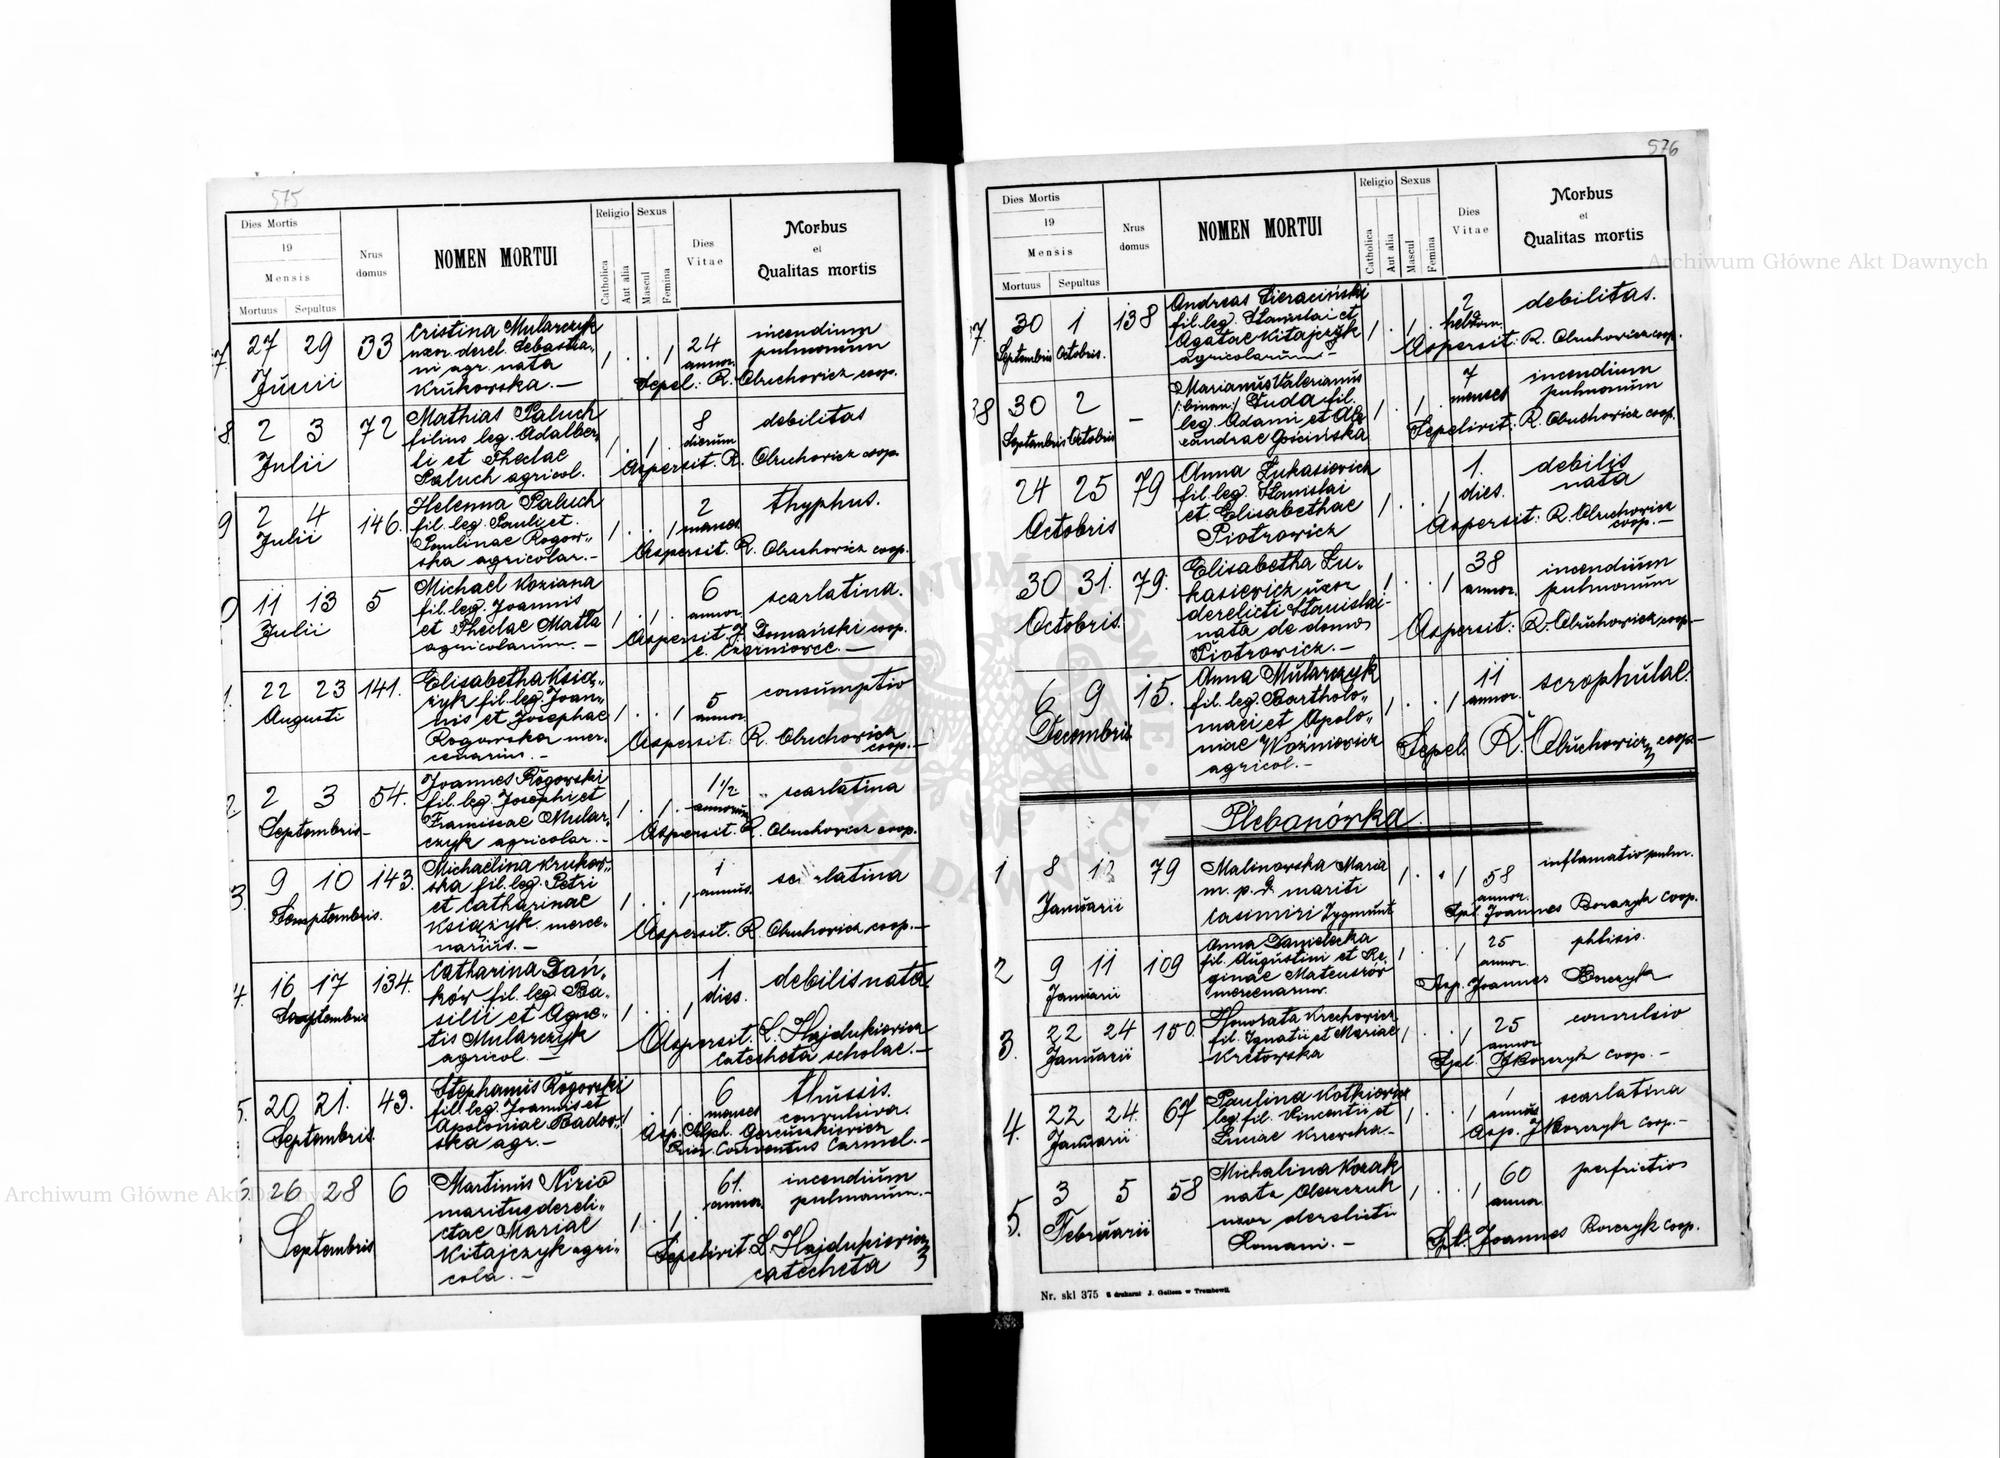 575
Dies Mortis
19
Mensis
Mortuus
Sepultus
Nrus
domus
NOMEN MORTUI
Religio
Sexus
Catholica
Aut alia
Mascul
Femina
Dies
Vitae
Morbus
et
Qualitas mortis
27 29 33 Cristina Mularczyk 24 incendium
Junii uxor derel. Sebastia„ annor. pulmonum
ni agr. nata
Krukowska.— Sepel: R. Obuchowicz coop.
8 2 3 72 Mathias Paluch 8 debilitas
Julii filius leg. Adalber„ dierum
ti et Theclae Aspersit. R. Obuchowicz coop.
Paluch agricol.
9 2 4 146. Helenna Paluch 2 thyphus.
Julii fil. leg. Pauli et menses
Paulinae Rogow„ Aspersit. R. Obuchowicz coop.
ska agricolar.—
0 11 13 5 Michael Koziana 6 scarlatina.
Julii fil. leg. Joannis annor.
et Theclae Matla Aspersit J. Domański coop.
agricolarum.— e. Czerniowce.—
1. 22 23 141. Elisabetha Ksią„ 5 consumptio
Augusti żyk fil. leg. Joan„ annor.
nis et Josephae Aspersit: R. Obuchowicz
Rogowska mer„ coop.—
cenarius.—
2. 2 3 54. Joannes Rogowski 1 1/2 scarlatina
Septembris fil. leg. Josephi et annorum
Franciscae Mular„ Aspersit. R. Obuchowicz coop.
czyk agricolar.—
3. 9 10 143. Michaëlina Krukow„ 1 scarlatina
Semptembris. ska fil. leg. Petri annus.
et Catharinae Aspersit. R. Obuchowicz coop.—
Książyk merce„
narius.—
4. 16 17 134. Catharina Dań„ 1 debilis nata.
Septembris ków fil. leg. Ba„ dies.
silii et Agne„ Aspersit. L. Hajdukiewicz
tis Mularczyk catecheta scholae.—
agricol.—
5. 20 21. 43. Stephanus Rogowski 6 thussis.
Septembris. fil. leg. Joannis et menses convulsiva.
Apoloniae Badow„ Asp. Alph.
ska agr.— Prior Conventus Carmel.—
26 28 6 Martinus Nizio 61. incendium
Septembris maritus dereli„ annor. pulmonum.—
ctae Mariae
Kitajczyk agri„ Sepelivit L. Hajdukiewicz
cola.— catecheta
576
Dies Mortis
19
Mensis
Mortuus
Sepultus
Nrus
domus
NOMEN MORTUI
Religio
Sexus
Catholica
Aut alia
Mascul
Femina
Dies
Vitae
Morbus
et
Qualitas mortis
7. 30 1 138 Andreas Sieraciński 2 debilitas.
Septembris Octobris. fil. leg. Stanislai et hebdom.
Agatae Kitajczyk Aspersit: R. Obuchowicz coop.
agricolarum—
8 30 2 — Marianus Valerianus 7 incendium
Septembris Octobris /:binom:/ Duda fil. menses pulmonum
leg. Adami et Ale Sepelivit: R. Obuchowicz coop.
xandrae Gościńska
24 25 79 Anna Łukasiewicz 1. debilis
Octobris fil. leg. Stanislai dies. nata
et Elisabethae Aspersit: R. Obuchowicz
Piotrowicz coop.—
30 31. 79. Elisabetha Łu„ 38 incendium
Octobris kasiewicz uxor annor. pulmonum
derelicti Stanislai Aspersit: R. Obuchowicz coop—
nata de domo
Piotrowicz.—
6 9 15. Anna Mularczyk 11 scrophulae.
Decembris fil. leg. Bartholo„ annor.
maei et Apolo„ Sepel. R. Obuchowicz coop.—
niae Woźniewicz
agricol.—
Plebanówka.
1 8 79 Malinowska Maria 58 inflamatio pulm.
Januarii m. p. d. mariti annor.
Casimiri Zygmunt Spl. Joannes Borczyk coop.
2 9 11 109 Anna Danielecka 25 phtisis.
Januarii fil. Augustini et Re annor.
ginae Mateuszów Asp. Joannes Borczyk
mercenarior.
3. 22 24 150. Honorata Krechowicz 25 convulsio
Januarii fil. Ignatii et Mariae annor
Kretowska Spl. JBorczyk coop.—
4. 22 24. 67 Paulina Kotkiewicz 1 scarlatina
Januarii leg. fil. Vincentii et annus
Luciae Asp. JBorczyk coop.—
5. 3 5 58 Michalina Kozak 60 perfrictio
Februarii nata Oleszczuk annor
uxor derelicti
Romani.— Spl. Joannes Borczyk coop.
Nr. skl 375 Z drukarni J. Gollesa w Trembowli.
Archiwum Główne Akt Dawnych
Archiwum Główne Akt Dawnych
ARCHIWUM GŁÓWNE AKT DAWNYCH